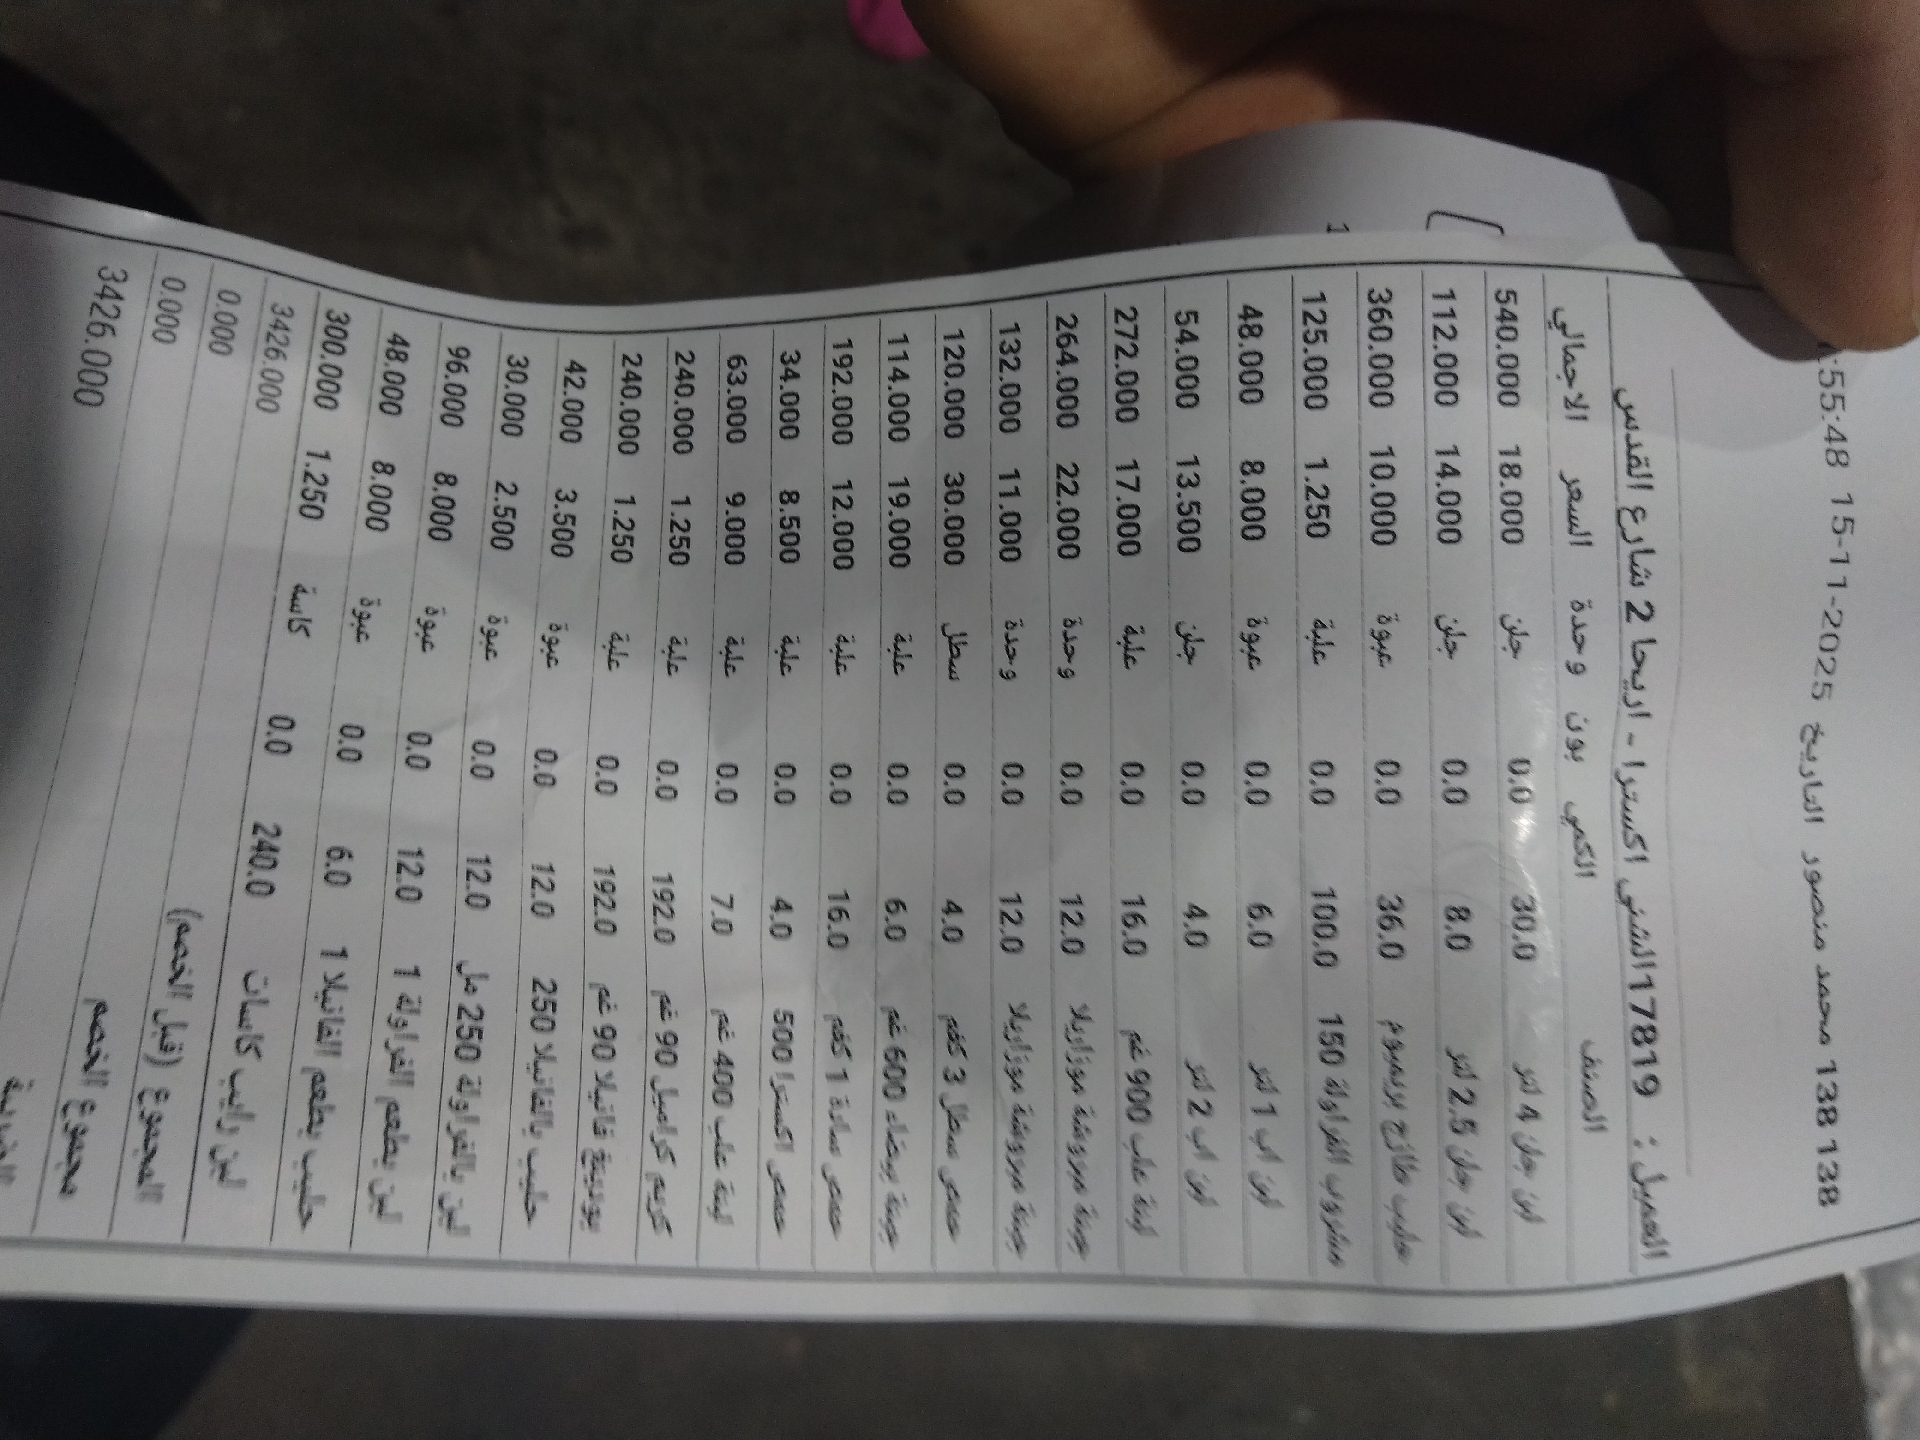 138 138 محمد منصور التاريخ 15-11-2025 :55:48
العميل : 17819الشني اكسترا - اريحا 2 شارع القدس
الصنف الكمي بون وحدة السعر الاجمالي
لبن جلن 4 لتر 30.0 0.0 جلن 18.000 540.000
لبن جلن 2.5 لتر 8.0 0.0 جلن 14.000 112.000
حليب طازج بريميوم 36.0 0.0 عبوة 10.000 360.000
مشروب الفراولة 150 100.0 0.0 علبة 1.250 125.000
لبن اب 1 لتر 6.0 0.0 عبوة 8.000 48.000
لبن اب 2 لتر 4.0 0.0 جلن 13.500 54.000
لبنة علب 900 غم 16.0 0.0 علبة 17.000 272.000
جبنة مبروشة موزاريلا 12.0 0.0 وحدة 22.000 264.000
جبنة مبروشة موزاريلا 12.0 0.0 وحدة 11.000 132.000
حمص سطل 3 كغم 4.0 0.0 سطل 30.000 120.000
جبنة بيضاء 600 غم 6.0 0.0 علبة 19.000 114.000
حمص سادة 1 كغم 16.0 0.0 علبة 12.000 192.000
حمص اكسترا 500 4.0 0.0 علبة 8.500 34.000
لبنة علب 400 غم 7.0 0.0 علبة 9.000 63.000
كريم كراميل 90 غم 192.0 0.0 علبة 1.250 240.000
بودينغ فانيلا 90 غم 192.0 0.0 علبة 1.250 240.000
حليب بالفانيلا 250 12.0 0.0 عبوة 3.500 42.000
لبن بالفراولة 250 مل 12.0 0.0 عبوة 2.500 30.000
لبن بطعم الفراولة 1 12.0 0.0 عبوة 8.000 96.000
حليب بطعم الفانيلا 1 6.0 0.0 عبوة 8.000 48.000
لبن رايب كاسات 240.0 0.0 كاسة 1.250 300.000
المجموع (قبل الخصم) 3426.000
مجموع الخصم 0.000
الضريبة 0.000
3426.000